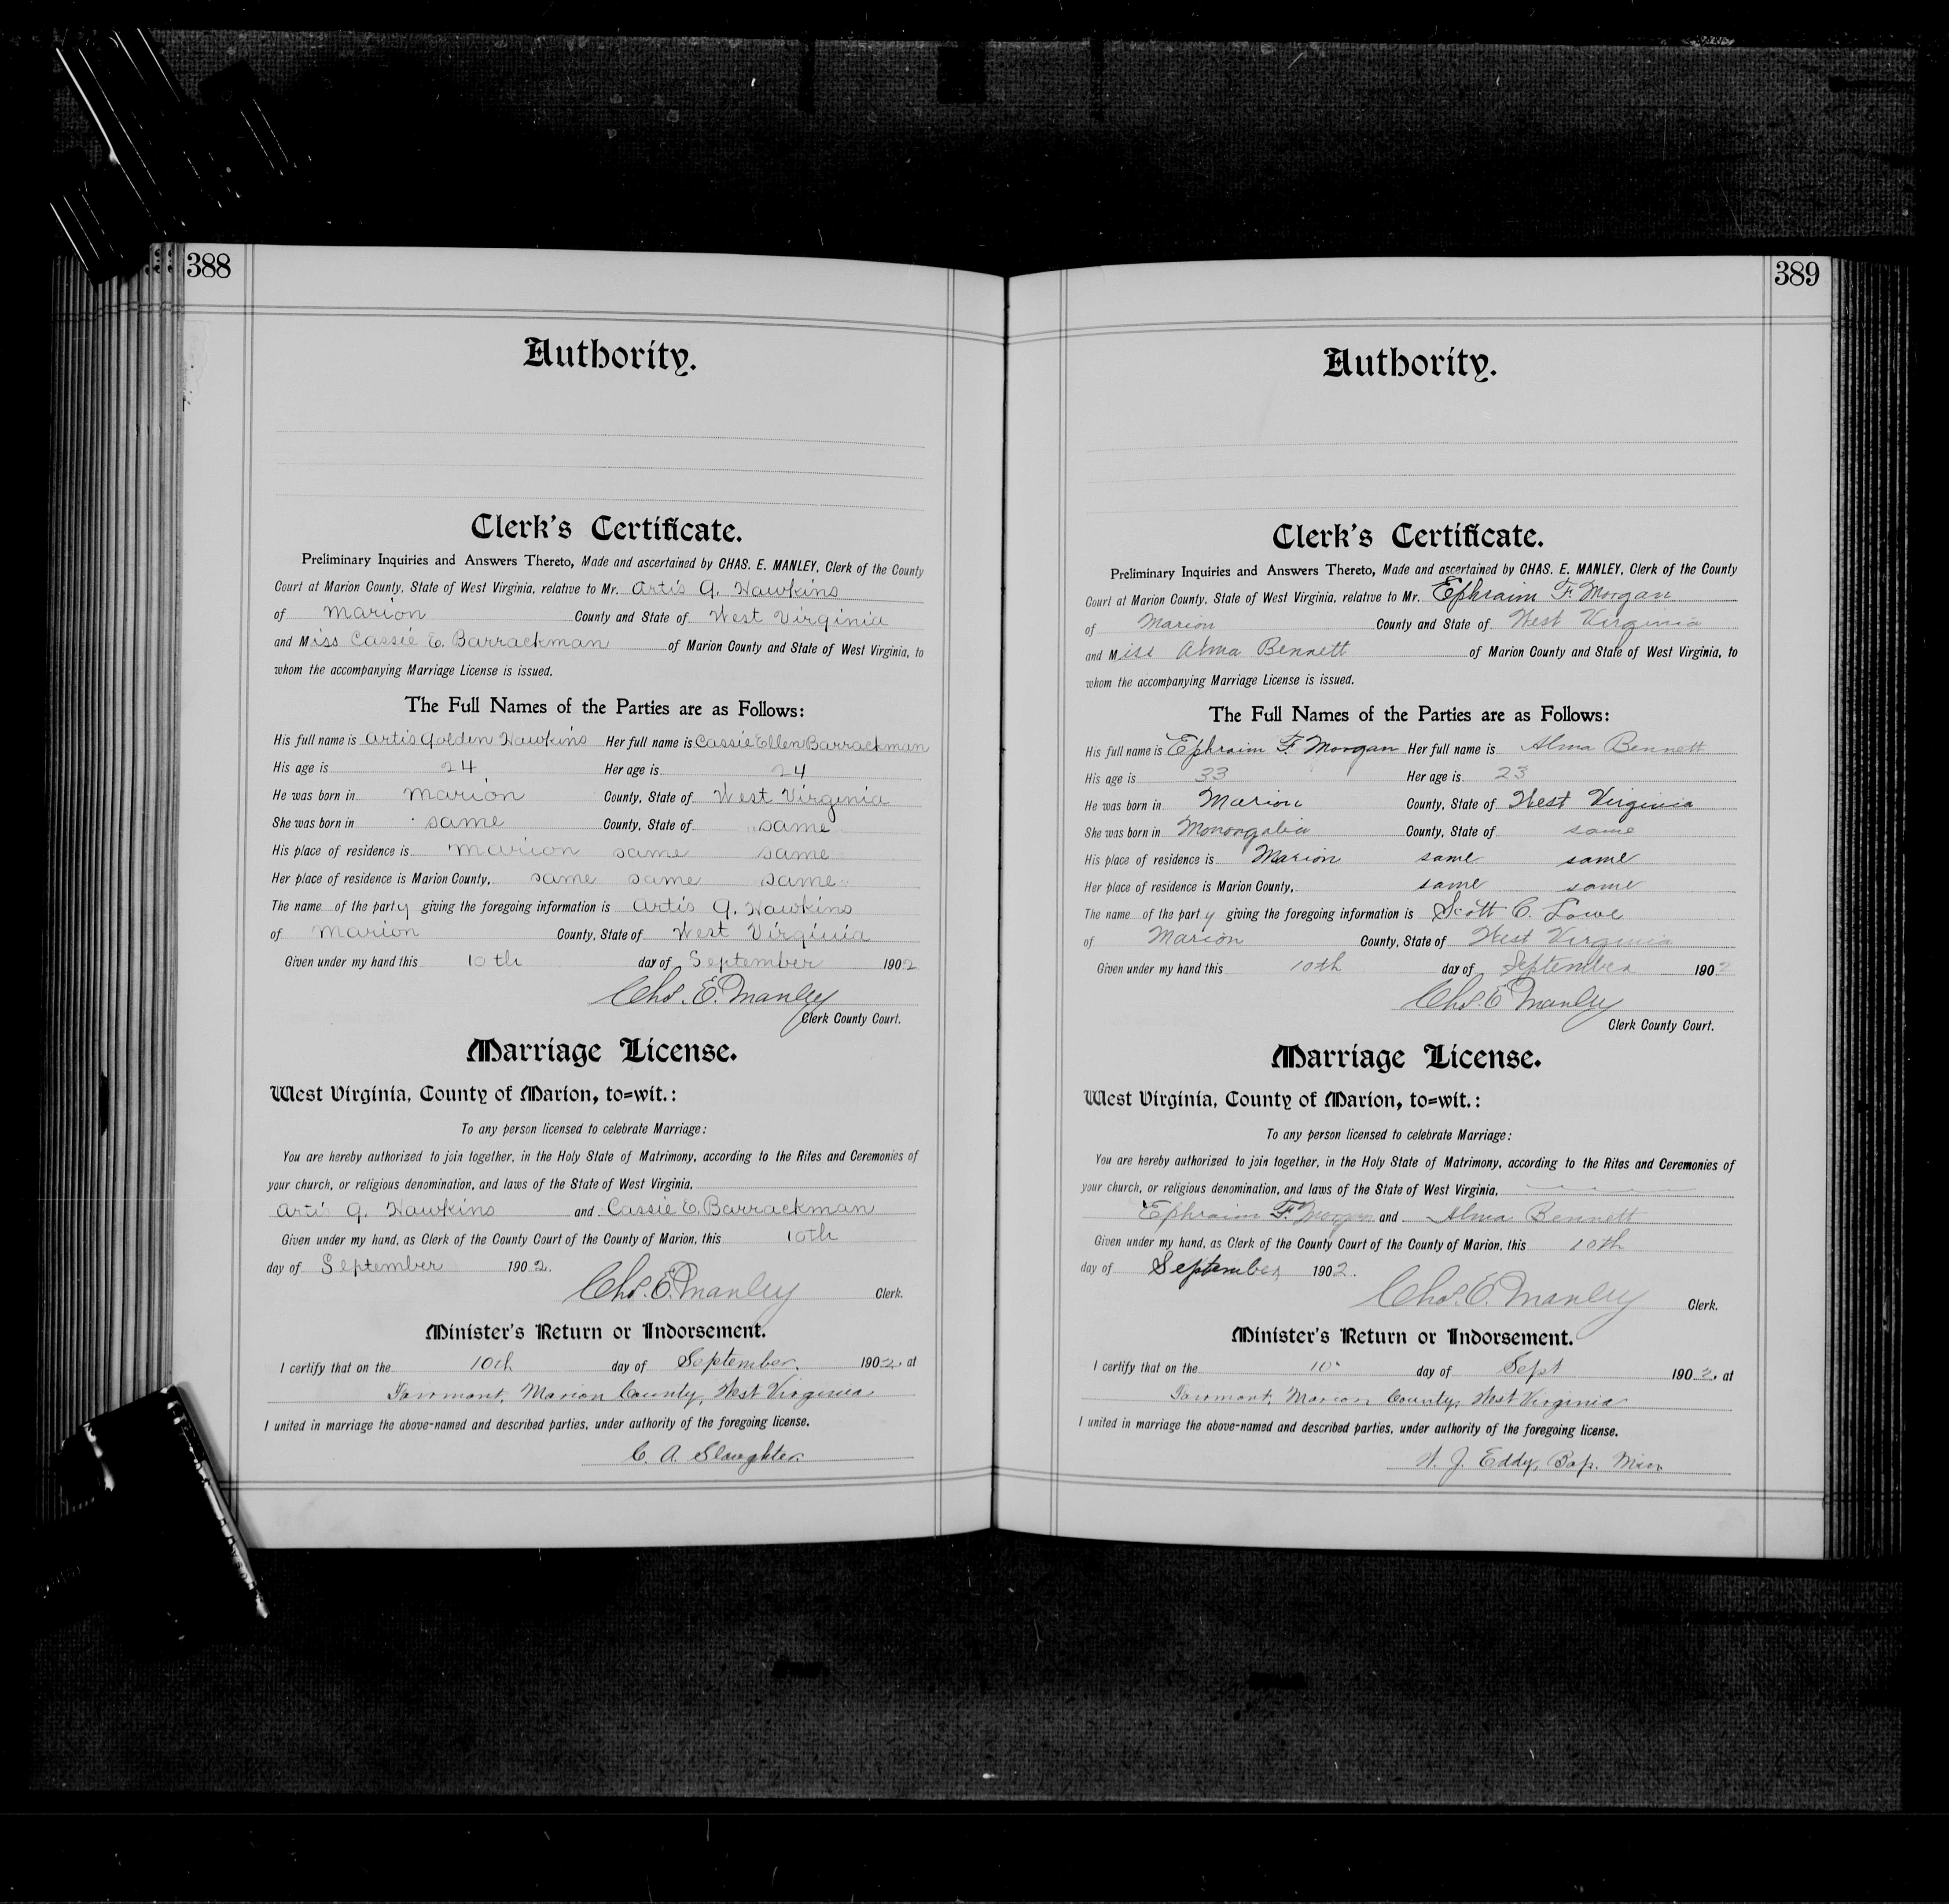 388
Authority.
Clerk's Certificate.
Preliminary Inquiries and Answers Thereto, Made and ascertained by CHAS. E. MANLEY, Clerk of the County
Court at Marion County, State of West Virginia, relative to Mr. Artis G. Hawkins
of Marion County and State of West Virginia
and Miss Cassie E. Barrackman of Marion County and State of West Virginia, to
whom the accompanying Marriage License is issued.
The Full Names of the Parties are as Follows:
His full name is Artis Golden Hawkins Her full name is Cassie Ellen Barrackman
His age is 24 Her age is 24
He was born in Marion County, State of West Virginia
She was born in same County, State of same
His place of residence is Marion same same
Her place of residence is Marion County, same same same
The name of the party giving the foregoing information is Artis G. Hawkins
of Marion County, State of West Virginia
Given under my hand this 10th day of September 1902
Chs. E. Manley
Clerk County Court.
Marriage License.
West Virginia, County of Marion, to=wit.:
To any person licensed to celebrate Marriage:
You are hereby authorized to join together, in the Holy State of Matrimony, according to the Rites and Ceremonies of
your church, or religious denomination, and laws of the State of West Virginia,
Artis G. Hawkins and Cassie E. Barrackman
Given under my hand, as Clerk of the County Court of the County of Marion, this 10th
day of September 1902.
Chs. E. Manley Clerk.
Minister's Return or Indorsement.
I certify that on the 10th day of September. 1902, at
Fairmont, Marion County, West Virginia
I united in marriage the above-named and described parties, under authority of the foregoing license.
C. A. Slaughter.
389
Authority.
Clerk's Certificate.
Preliminary Inquiries and Answers Thereto, Made and ascertained by CHAS. E. MANLEY, Clerk of the County
Court at Marion County, State of West Virginia, relative to Mr. Ephraim F. Morgan
of Marion County and State of West Virginia
and Miss Alma Bennett of Marion County and State of West Virginia, to
whom the accompanying Marriage License is issued.
The Full Names of the Parties are as Follows:
His full name is Ephraim F. Morgan Her full name is Alma Bennett
His age is 33 Her age is 23
He was born in Marion County, State of West Virginia
She was born in Monongalia County, State of same
His place of residence is Marion same same
Her place of residence is Marion County, same same
The name of the party giving the foregoing information is Scott C. Lowe
of Marion County, State of West Virginia
Given under my hand this 10th day of September 1902
Chs. E. Manley
Clerk County Court.
Marriage License.
West Virginia, County of Marion, to=wit.:
To any person licensed to celebrate Marriage:
You are hereby authorized to join together, in the Holy State of Matrimony, according to the Rites and Ceremonies of
your church, or religious denomination, and laws of the State of West Virginia,
Ephraim F. Morgan and Alma Bennett
Given under my hand, as Clerk of the County Court of the County of Marion, this 10th
day of September 1902.
Chs. E. Manley Clerk.
Minister's Return or Indorsement.
I certify that on the 10" day of Sept 1902, at
Fairmont, Marion County, West Virginia
I united in marriage the above-named and described parties, under authority of the foregoing license.
W. J. Eddy, Bap. Min.